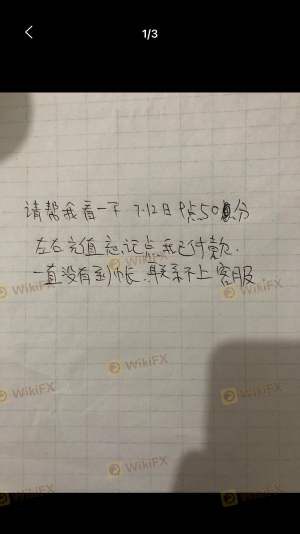 1/3
请帮我看一下 7.12日 9点50分
左右充值 忘记点 我已付款.
一直没有到帐. 联系不上客服.
WikiFX
WikiFX
WikiFX
WikiFX
WikiFX
WikiFX
WikiFX
WikiFX
WikiFX
WikiFX